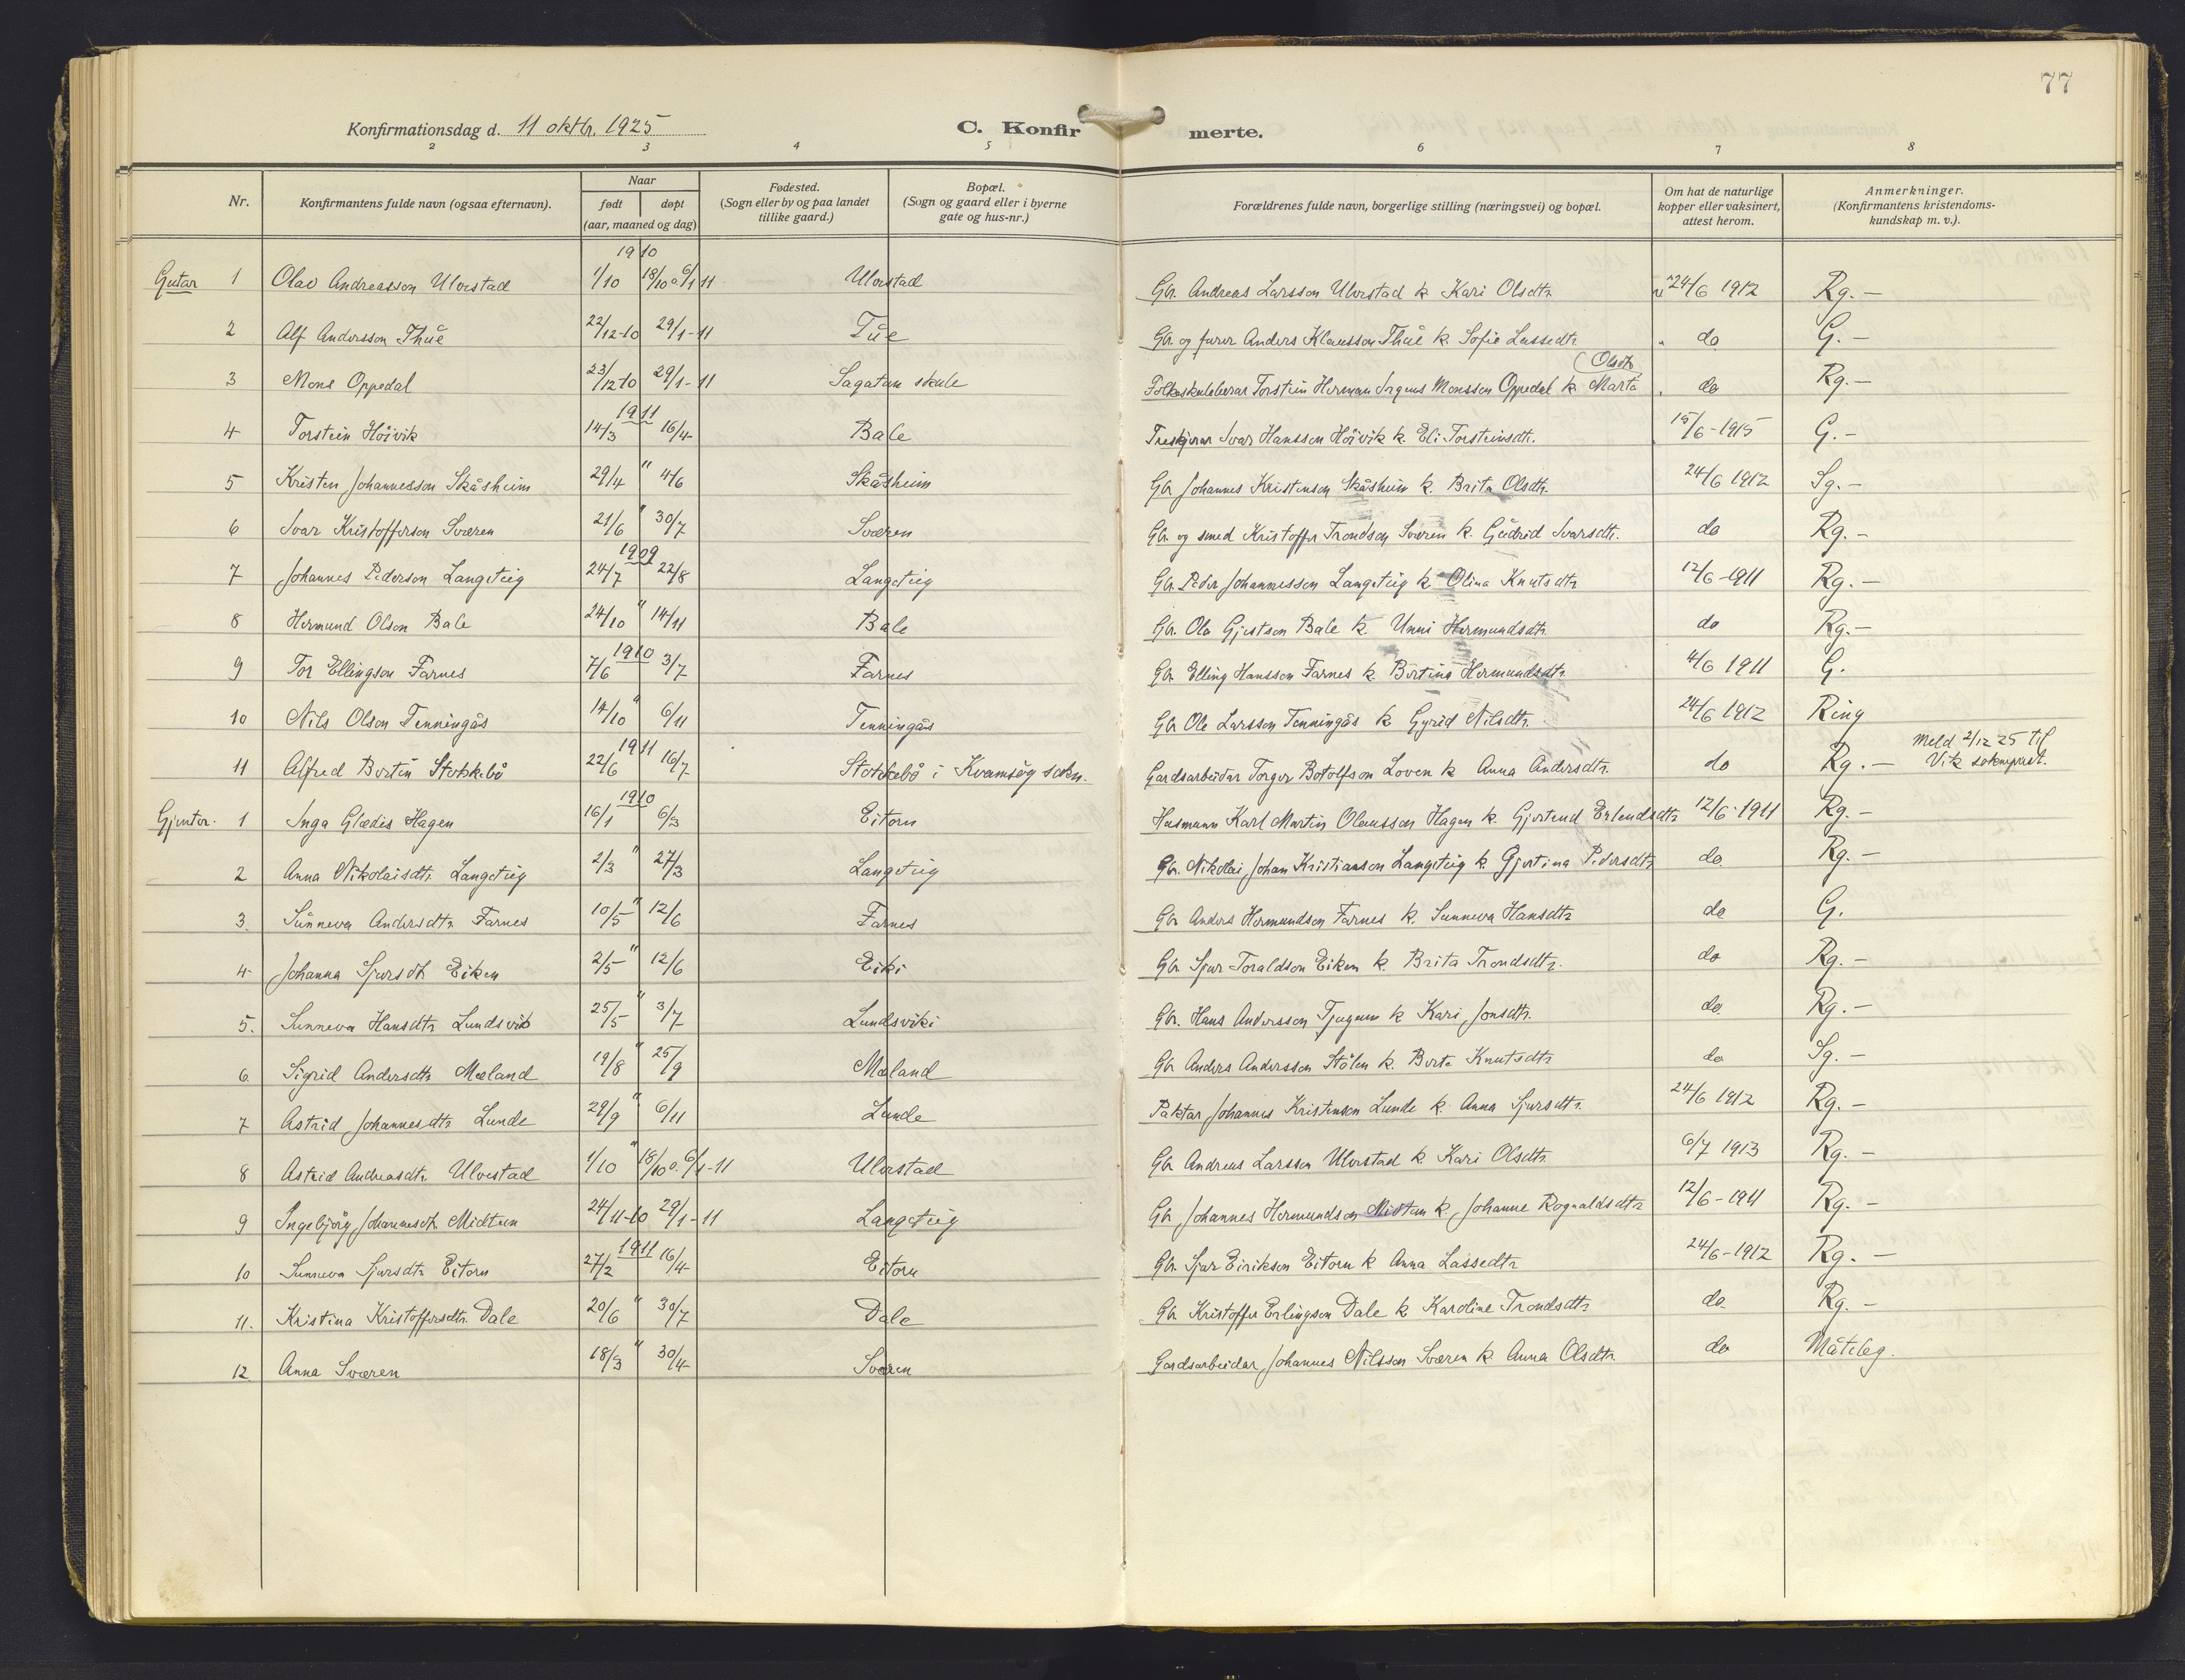 77
Konfirmationsdag d. 11 oktbr. 1925
C. Konfirmerte.
2 3 4 5 6 7 8
Nr.
Konfirmantens fulde navn (ogsaa efternavn).
Naar
født døpt
(aar, maaned og dag)
Fødested.
(Sogn eller by og paa landet
tillike gaard.)
Bopæl.
(Sogn og gaard eller i byerne
gate og hus-nr.)
Forældrenes fulde navn, borgerlige stilling (næringsvei) og bopæl.
Om hat de naturlige
kopper eller vaksinert,
attest herom.
Anmerkninger.
(Konfirmantens kristendoms-
kundskap m. v.).
1910
Gutar 1 Olav Andreasson Ulvestad 1/10 18/10 o. 6/1 11 Ulvestad Gbr. Andreas Larsson Ulvestad k Kari Olsdtr. v 24/6 1912 Rg. —
2 Alf Andersson Thue 22/12-10 29/1-11 Tue Gbr og furer Anders Klausson Thue k. Sofie Lassedtr. " do G. —
3 Mons Oppedal 23/12 10 29/1-11 Sagatun skule Folkeskulelærar Torstein Herman Monsson Oppedal k. Marta (Olsdtr. " do Rg. —
1911
4 Torstein Höivik 14/3 16/4 Bale Treskjerar Ivar Hansson Höivik k. Eli Torsteinsdtr. 15/6-1915 G. —
5 Kristen Johannesson Skåsheim 29/4 " 4/6 Skåsheim Gbr Johannes Kristenson Skåsheim k. Brita Olsdtr. 24/6 1912 Sg. —
6 Ivar Kristofferson Sværen 21/6 " 30/7 Sværen Gbr. og smed Kristoffer Trondson Sværen k. Gudrid Ivarsdtr. do Rg. —
1909
7 Johannes Pederson Langeteig 24/7 22/8 Langeteig Gbr. Peder Johannesson Langeteig k Olina Knutsdtr 12/6-1911 Rg. —
8 Hermund Olson Bale 24/10 " 14/11 Bale Gbr. Ola Gjestson Bale k. Unni Hermundsdtr. do Rg. —
1910
9 Tor Ellingson Farnes 7/6 3/7 Farnes Gbr. Elling Hansson Farnes k. Bertina Hermundsdtr. 4/6 1911 G.
10 Nils Olson Tenningås 14/10 " 6/11 Tenningås Gbr Ole Larsson Tenningås k Gyrid Nilsdtr. 24/6 1912 Ring
1911
11 Alfred Bertin Stokkebö 22/6 16/7 Stokkebö i Kvamsöy sokn. Gardsarbeidar Torger Botolfson Loven k Anna Andersdtr. do Rg. — Meld 2/12 25 til
Vik sokneprest.
1910
Gjenter. 1 Inga Glædis Hagen 16/1 6/3 Eitorn Husmann Karl Martin Olausson Hagen k. Gjertrud Erlendsdtr 12/6-1911 Rg. —
2 Anna Nikolaisdtr. Langeteig 2/3 " 27/3 Langeteig Gbr. Nikolai Johan Kristianson Langeteig k. Gjertina Pedersdtr do Rg. —
3. Sunneva Andersdtr Farnes 10/5 " 12/6 Farnes Gbr Anders Hermundson Farnes k. Sunneva Hansdtr do G.
4 Johanna Sjursdtr Eiken 2/5 " 12/6 Eiki Gbr Sjur Toraldson Eiken k. Brita Trondsdtr. do Rg. —
5. Sunneva Hansdtr Lundsvik 25/5 " 3/7 Lundsviki Gbr. Hans Andersson Tjugum k Kari Jonsdtr. do Rg. —
6 Sigrid Andersdtr Mæland 19/8 " 25/9 Mæland Gbr Anders Andersson Stölen k. Berta Knutsdtr do Sg. —
7 Astrid Johannesdtr Lunde 29/9 " 6/11 Lunde Paktar Johannes Kristenson Lunde k. Anna Sjursdtr. 24/6 1912 Rg. —
8 Astrid Andreasdtr. Ulvestad 1/10 " 18/10 o. 6/1-11 Ulvestad Gbr Andreas Larsson Ulvestad k. Kari Olsdtr. 6/7 1913 Rg. —
9 Ingebjörg Johannesdtr. Midtun 24/11-10 29/1-11 Langeteig Gbr Johannes Hermundson Midtun k. Johanne Rognaldsdtr 12/6-1911 Rg. —
1911
10 Sunneva Sjursdtr Eitorn 27/2 16/4 Eitorn Gbr. Sjur Eirikson Eitorn k Anna Lassedtr 24/6-1912 Rg. —
11. Kristina Kristoffersdtr. Dale 20/6 " 30/7 Dale Gbr Kristoffer Erlingson Dale k Karoline Trondsdtr do Rg. —
12 Anna Sværen 18/3 " 30/4 Sværen Gardsarbeidar Johannes Nilsson Sværen k. Anna Olsdtr. do Måteleg.